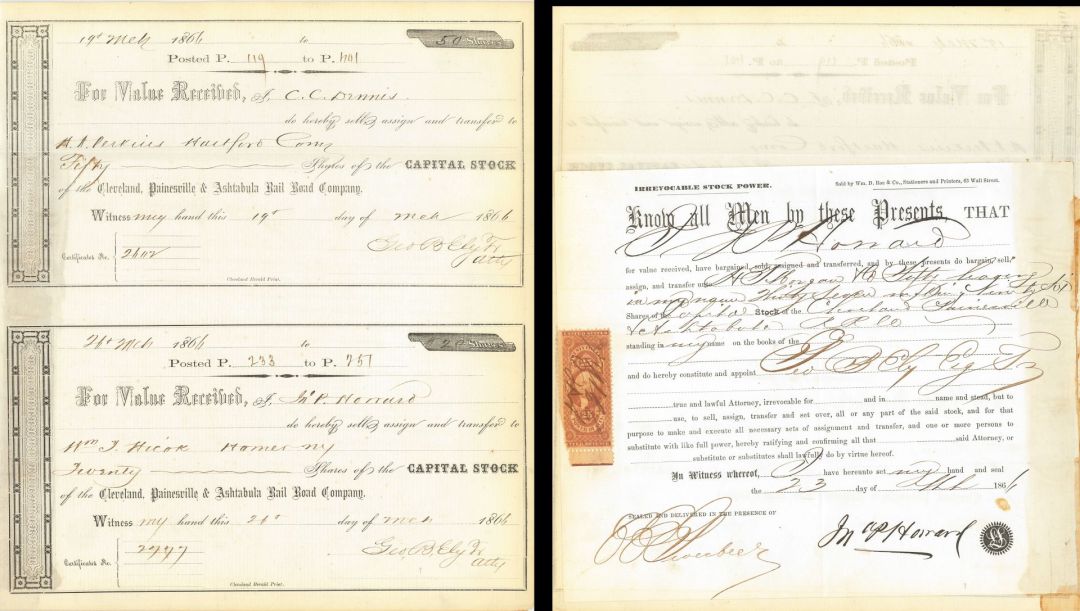 19th Mch 1866 to 50 Shares
Posted P. 119 to P.
For Value Received, I, C. C. Dennis
do hereby sell, assign and transfer to
Perkins Hartford Conn
Fifty Shares of the CAPITAL STOCK
of the Cleveland, Painesville & Ashtabula Rail Road Company.
Witness my hand this 19th day of Mch 1866
Geo. B. Ely Tr
Certificates No.
atty
Cleveland Herald Print.
26th Mch 1866 to 20 Shares
Posted P. 233 to P. 257
For Value Received, I, Jn P. Howard
do hereby sell, assign and transfer to
Wm. J. Hicok Homer NY
Twenty Shares of the CAPITAL STOCK
of the Cleveland, Painesville & Ashtabula Rail Road Company.
Witness my hand this day of Mch 1866
Geo. B. Ely Tr
Certificates No. atty
Cleveland Herald Print.
IRREVOCABLE STOCK POWER. Sold by Wm. D. Roe & Co., Stationers and Printers, 63 Wall Street.
Know all Men by these Presents, THAT
I Jn P Howard
for value received, have bargained, sold, assigned and transferred, and by these presents do bargain, sell,
assign, and transfer unto
in my name
Shares of the Capital Stock of the Cleveland Painesville
& Ashtabula R R Co
standing in my name on the books of the
and do hereby constitute and appoint Geo B Ely
true and lawful Attorney, irrevocable for and in name and stead, but to
use, to sell, assign, transfer and set over, all or any part of the said stock, and for that
purpose to make and execute all necessary acts of assignment and transfer, and one or more persons to
substitute with like full power, hereby ratifying and confirming all that said Attorney, or
substitute or substitutes shall lawfully do by virtue hereof.
In Witness whereof, I have hereunto set my hand and seal
the 23 day of Mch 1866
SEALED AND DELIVERED IN THE PRESENCE OF
Jn P Howard
LS